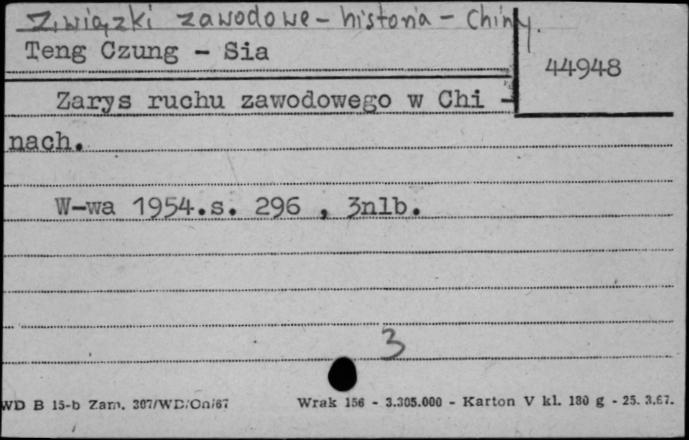 Związki zawodowe - historia - Chiny.
Teng Czung - Sia
44948
Zarys ruchu zawodowego w Chi -
nach.
W-wa 1954.s. 296 , 3nlb.
3
WD B 15-b Zam. 307/WD/On/67 Wrak 156 - 3.305.000 - Karton V kl. 180 g - 25. 3.67.